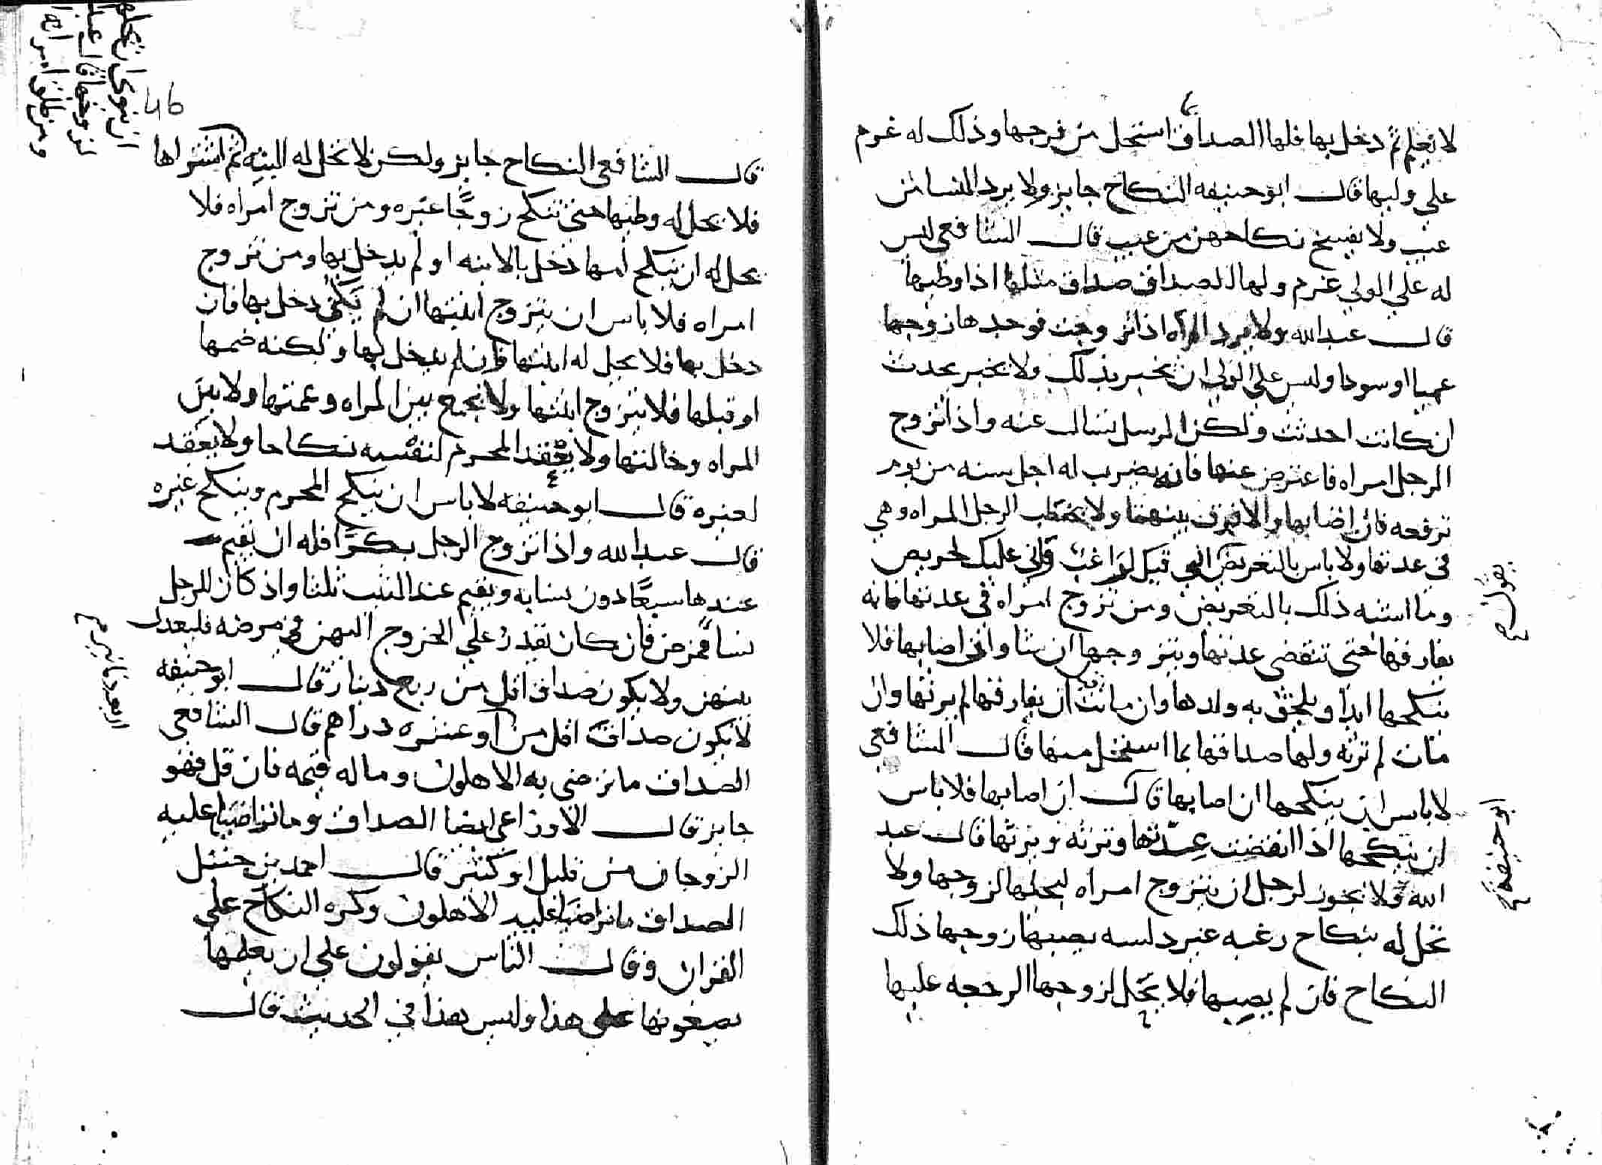 لا تعلم ثم دخل بها فلها الصداق بما استحل من فرجها وذلك له غرم
على وليها قال ابو حنيفه النكاح جايز ولا يرد النسا من
عيب ولا يفسخ نكاحهن من عيب قال الشافعي ليس
له على الولي غرم ولها الصداق صداق مثلها اذا وطيها
قال عبد الله ولا يرد المراه اذا تزوجت فوجدها زوجها
عميا او سودا وليس على الولي ان يخبر بذلك ولا يخبر بحدث
ان كانت احدثت ولكن المرسل يسال عنه واذا تزوج
الرجل امراه فاعترض عنها فانه يضرب له اجل سنه من يوم
ترفعه فان اصابها والا فرق بينهما ولا يخطب الرجل المراه وهي
في عدتها ولا باس بالتعريض فيك لراغب واني عليك لحريص
وما اشبه ذلك بالتعريض ومن تزوج امراه في عدتها فانه
يفارقها حتى تنقضي عدتها ويتزوجها ان شا وان اصابها فلا
ينكحها ابدا ويلحق به ولدها وان ماتت قبل ان يفارقها لم يرثها وان
مات لم ترثه ولها صداقها بما استحل منها قال الشافعي
لا باس ان ينكحها ان اصابها قال ان اصابها فلا باس
ان ينكحها اذا انقضت عدتها وترثه ويرثها قال عبد
الله ولا يجوز لرجل ان يتزوج امراه ليحلها لزوجها ولا
تحل له بنكاح رغبه غير دلسه يصيبها زوجها ذلك
النكاح فان لم يصيبها فلا تحل لزوجها الرجعه عليها
يقول
ابو حنيفة
46
ان ينوي ان يحلها
تزوجها قال عبد
ومن طلق امراته
قال الشافعي النكاح جايز ولكن لا تحل له البته ثم اشتراها
فلا تحل له وطيها حتى تنكح زوجًا غيره ومن تزوج امراه فلا
يحل له ان ينكح امها دخل بالابنه او لم يدخل بها ومن تزوج
امراه فلا باس ان يتزوج ابنتها ان لم يكن دخل بها فان
دخل بها فلا تحل له ابنتها فان لم يدخل بها ولكنه ضمها
او قبلها فلا يتزوج ابنتها ولا يجمع بين المراه وعمتها ولا بين
المراه وخالتها ولا يعقد المحرم لنفسه نكاحا ولا يعقد
لغيره قال ابو حنيفة لا باس ان ينكح المحرم وينكح غيره
قال عبد الله واذا تزوج الرجل بكرًا فله ان يقيم
عندها سبعًا دون نسايه ويقيم عند الثيب ثلثا واذ كان للرجل
نسا فمرض فان كان يقدر على الخروج اليهن في مرضه فليعدل
بينهن ولا يكون صداق اقل من ربع دينار قال ابو حنيفه
لا يكون صداق اقل من عشره دراهم قال الشافعي
الصداق ما ترضى به الاهلون وما له قيمه فان قل فهو
جايز قال الاوزاعي ايضا الصداق وما تراضيا عليه
الزوجان من قليل او كثير قال احمد بن حنبل
الصداق ما تراضيا عليه الاهلون وكره النكاح على
القران وقال الناس يقولون على ان يعلمها
يضعونها على هذا وليس هذا في الحديث قال